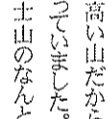 高い山だから
っていました。
士山のなんと